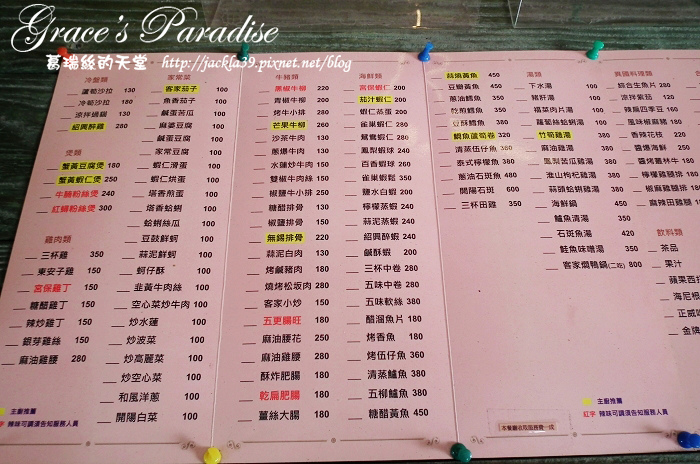 Grace's Paradise
葛瑞絲的天堂 http://jackla39.pixnet.net/blog
冷盤類
蘆筍沙拉 130
冷筍沙拉 180
涼拌過貓 130
紹興醉雞 280
煲類
蟹黃豆腐煲 180
蟹黃蝦仁煲 250
牛腩粉絲煲 240
紅蟳粉絲煲 300
雞肉類
三杯雞 350
東安子雞 350
宮保雞丁 160
糖醋雞丁 160
辣炒雞丁 160
銀芽雞絲 160
麻油雞腰 280
家常菜
客家茄子 100
魚香茄子 100
鹹蛋苦瓜 100
鹹蛋豆腐 100
麻婆豆腐 100
家常豆腐 100
蝦仁滑蛋 100
蝦仁烘蛋 100
塔香煎蛋 100
塔香蛤蜊 100
蛤蜊絲瓜 100
豆鼓鮮蚵 100
蒜泥鮮蚵 100
蚵仔酥 100
韭黃牛肉絲 100
空心菜炒牛肉 100
炒水蓮 100
炒波菜 100
炒高麗菜 100
炒空心菜 100
和風洋蔥 100
開陽白菜 100
牛豬類
黑椒牛柳 200
青椒牛柳 200
烤牛小排 200
芒果牛柳 200
沙茶牛肉 130
蔥爆牛肉 130
水蓮炒牛肉 130
雙椒牛肉絲 130
椒鹽牛小排 250
糖醋排骨 130
椒鹽排骨 150
無錫排骨 220
蒜泥白肉 130
烤鹹豬肉 180
燒烤松坂肉 280
客家小炒 150
五更腸旺 180
麻油腰花 250
麻油雞腰 280
酥炸肥腸 180
乾扁肥腸 180
薑絲大腸 180
海鮮類
宮保蝦仁 220
茄汁蝦仁 200
蝦仁蒸蛋 200
雀巢蝦仁 280
鴛鴦蝦仁 280
鳳梨蝦球 240
百香蝦球 260
雀巢蝦鬆 350
鹽水白蝦 200
檸檬蒸蝦 240
蒜泥蒸蝦 240
紹興醉蝦 240
鹹酥蝦 220
三杯中卷 280
五味中卷 240
五味軟絲 330
醋溜魚片 180
烤香魚 90
烤伍仔魚 360
清蒸鱸魚 380
五柳鱸魚 380
糖醋黃魚 450
蒜燒黃魚 450
豆瓣黃魚 450
蔥油鱈魚 280
乾煎鱈魚 260
豆酥鱈魚 280
鯛魚蘆筍卷 320
清蒸伍仔魚 380
泰式檸檬魚 380
蔥油石斑魚 480
開陽石斑 600
三杯田雞 240
湯類
下水湯 100
豬肝湯 100
榨菜肉片湯 100
蘿蔔絲蛤蜊湯 200
竹筍雞湯 350
麻油雞湯 350
鳳梨苦瓜雞湯 350
淮山枸杞雞湯 350
蒜頭蛤蜊雞湯 350
海鮮鍋 450
鱸魚清湯 350
石斑魚湯 420
鮭魚味噌湯 320
客家燜鴨鍋(二吃) 800
異國料理類
綜合生魚片
涼拌紫茄
辣扁四季豆
風味椒麻豬
香辣花枝
醬爆海鮮
醬烤雞林牛
檸檬雞腿排
椒麻雞腿排
麻辣田雞腿
飲料類
茶品
果汁
蘋果西打
海尼根
正威
金牌
主廚推薦
紅字 辣味可調淡告知服務人員
主廚推薦
紅字 辣味可調淡告知服務人員
本餐廳酌收服務費一成